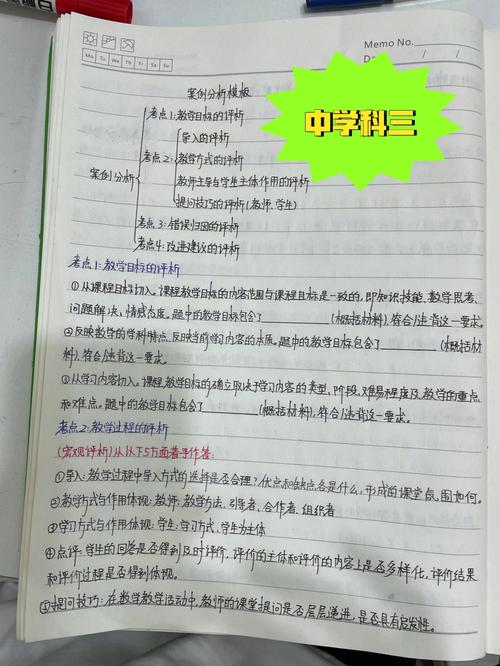 Memo No.
Mo Tu We Th Fr Sa Su
Date / /
中学科三
案例分析模板
案例分析
考点1:教学目标的评析
考点2:教学方式的评析
导入的评析
教师主导与学生主体作用的评析
提问技巧的评析(教师.学生)
考点3:错误归因的评析
考点4:改进建议的评析
考点1:教学目标的评析
①从课程目标切入.课程教学目标的内容范围与课程目标是一致的,即知识技能、数学思考、
问题解决,情感态度。题中的教学目标包含了________(概括材料).符合/违背这一要求。
②反映数学的学科特点、反映当前学习内容的本质。题中的教学目标包含了________(概括材
料).符合/违背这一要求。
③从学习内容切入.课程教学目标的确立取决于学习内容的类型,阶段、难易程度及教学的重点
和难点。题中的教学目标包含了________(概括材料),符合/违背这一要求。
考点2:教学过程的评析
(宏观评析)从以下5方面着手作答:
①导入:教学过程中导入方式的选择是否合理?优点和缺点各是什么,形成的课堂氛围如何。
②教学方式与作用体现:教师:教学方法,引导者、合作者.组织者
③学习方式与作用体现:学生:学习方式,学生为主体
④点评:学生的回答是否得到及时评价.评价的主体和评价的内容上是否多样化,评价结果
和评价过程是否得到体现。
⑤提问技巧:在数学教学活动中,教师的课堂提问是否层层递进,是否具有启发性。